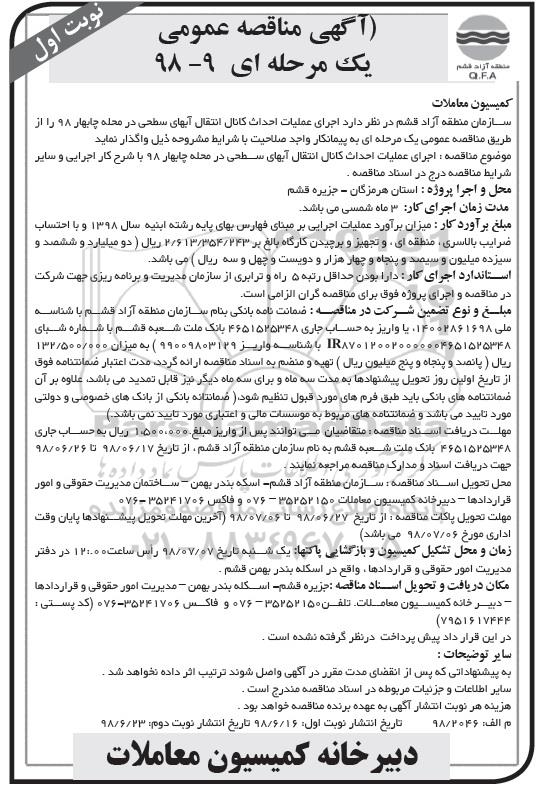 نوبت اول
(آگهی مناقصه عمومی
یک مرحله ای ۹- ۹۸
منطقه آزاد قشم
Q.F.A
کمیسیون معاملات
ســازمان منطقه آزاد قشم در نظر دارد اجرای عملیات احداث کانال انتقال آبهای سطحی در محله چابهار ۹۸ را از
طریق مناقصه عمومی یک مرحله ای به پیمانکار واجد صلاحیت با شرایط مشروحه ذیل واگذار نماید
موضوع مناقصه : اجرای عملیات احداث کانال انتقال آبهای ســطحی در محله چابهار ۹۸ با شرح کار اجرایی و سایر
شرایط مناقصه درج در اسناد مناقصه .
محل و اجرا پروژه : استان هرمزگان – جزیره قشم
مدت زمان اجرای کار: ۳ ماه شمسی می باشد.
مبلغ برآورد کار : میزان برآورد عملیات اجرایی بر مبنای فهارس بهای پایه رشته ابنیه سال ۱۳۹۸ و با احتساب
ضرایب بالاسری ، منطقه ای ، و تجهیز و برچیدن کارگاه بالغ بر ۲/۶۱۳/۳۵۴/۲۴۳ ریال ( دو میلیارد و ششصد و
سیزده میلیون و سیصد و پنجاه و چهار هزار و دویست و چهل و سه ریال ) می باشد.
اســتاندارد اجرای کار : دارا بودن حداقل رتبه ۵ راه و ترابری از سازمان مدیریت و برنامه ریزی جهت شرکت
در مناقصه و اجرای پروژه فوق برای مناقصه گران الزامی است.
مبلــغ و نوع تضمین شــرکت در مناقصــه : ضمانت نامه بانکی بنام سازمان منطقه آزاد قشــم با شناســه
ملی ۱۴۰۰۲۸۶۱۶۹۸، یا واریز به حســاب جاری ۴۶۵۱۵۲۵۳۴۸ بانک ملت شــعبه قشــم با شــماره شــبای
IR۸۷۰۱۲۰۰۲۰۰۰۰۰۰۴۶۵۱۵۲۵۳۴۸ با شناســه واریــز ۹۹۰۰۹۸۰۳۱۲۹ ) به میزان ۱۳۲/۵۰۰/۰۰۰
ریال ( پانصد و پنجاه و پنج میلیون ریال ) تهیه و منضم به اسناد مناقصه ارائه گردد، مدت اعتبار ضمانتنامه فوق
از تاریخ اولین روز تحویل پیشنهادها به مدت سه ماه و برای سه ماه دیگر نیز قابل تمدید می باشد، علاوه بر آن
ضمانتنامه های بانکی باید طبق فرم های مورد قبول تنظیم شود،( ضمانتانه بانکی از بانک های خصوصی و دولتی
مورد تایید می باشد و ضمانتنامه های مربوط به موسسات مالی و اعتباری مورد تایید نمی باشد.)
مهلــت دریافت اســناد مناقصه : متقاضیان مــی توانند پس از واریز مبلغ ۱.۵۰۰.۰۰۰ ریال به حســاب جاری
۴۶۵۱۵۲۵۳۴۸ بانک ملت شــعبه قشــم به نام سازمان منطقه آزاد قشم ، از تاریخ ۹۸/۰۶/۱۷ تا ۹۸/۰۶/۲۶
جهت دریافت اسناد و مدارک مناقصه مراجعه نمایند .
محل تحویل اســناد مناقصه : ســازمان منطقه آزاد قشم- اسکه بندر بهمن – ســاختمان مدیریت حقوقی و امور
قراردادها – دبیرخانه کمیسیون معاملات ۳۵۲۵۲۱۵۰ – ۰۷۶ و فاکس ۳۵۲۴۱۷۰۶-۰۷۶
مهلت تحویل پاکات مناقصه : از تاریخ ۹۸/۰۶/۲۷ تا ۹۸/۰۷/۰۶ (آخرین مهلت تحویل پیشــنهادها پایان وقت
اداری مورخ ۹۸/۰۷/۰۶ می باشد)
زمان و محل تشکیل کمیسیون و بازگشایی پاکتها: یک شــنبه تاریخ ۹۸/۰۷/۰۷ رأس ساعت ۱۲:۰۰ در دفتر
مدیریت امور حقوقی و قراردادها ، واقع در اسکله بندر بهمن قشم .
مکان دریافت و تحویل اســناد مناقصه: جزیره قشم- اســکله بندر بهمن – مدیریت امور حقوقی و قراردادها
– دبیــر خانه کمیســیون معامــلات. تلفــن ۳۵۲۵۲۱۵۰ – ۰۷۶ و فاکــس ۳۵۲۴۱۷۰۶-۰۷۶ (کد پستی :
۷۹۵۱۶۱۷۴۴۴)
در این قرار داد پیش پرداخت درنظر گرفته نشده است .
سایر توضیحات :
به پیشنهاداتی که پس از انقضای مدت مقرر در آگهی واصل شوند ترتیب اثر داده نخواهد شد .
سایر اطلاعات و جزئیات مربوطه در اسناد مناقصه مندرج است .
هزینه هر نوبت انتشار آگهی به عهده برنده مناقصه خواهد بود .
م الف: ۹۸/۲۰۴۶ تاریخ انتشار نوبت اول: ۹۸/۶/۱۶ تاریخ انتشار نوبت دوم: ۹۸/۶/۲۳
دبیرخانه کمیسیون معاملات